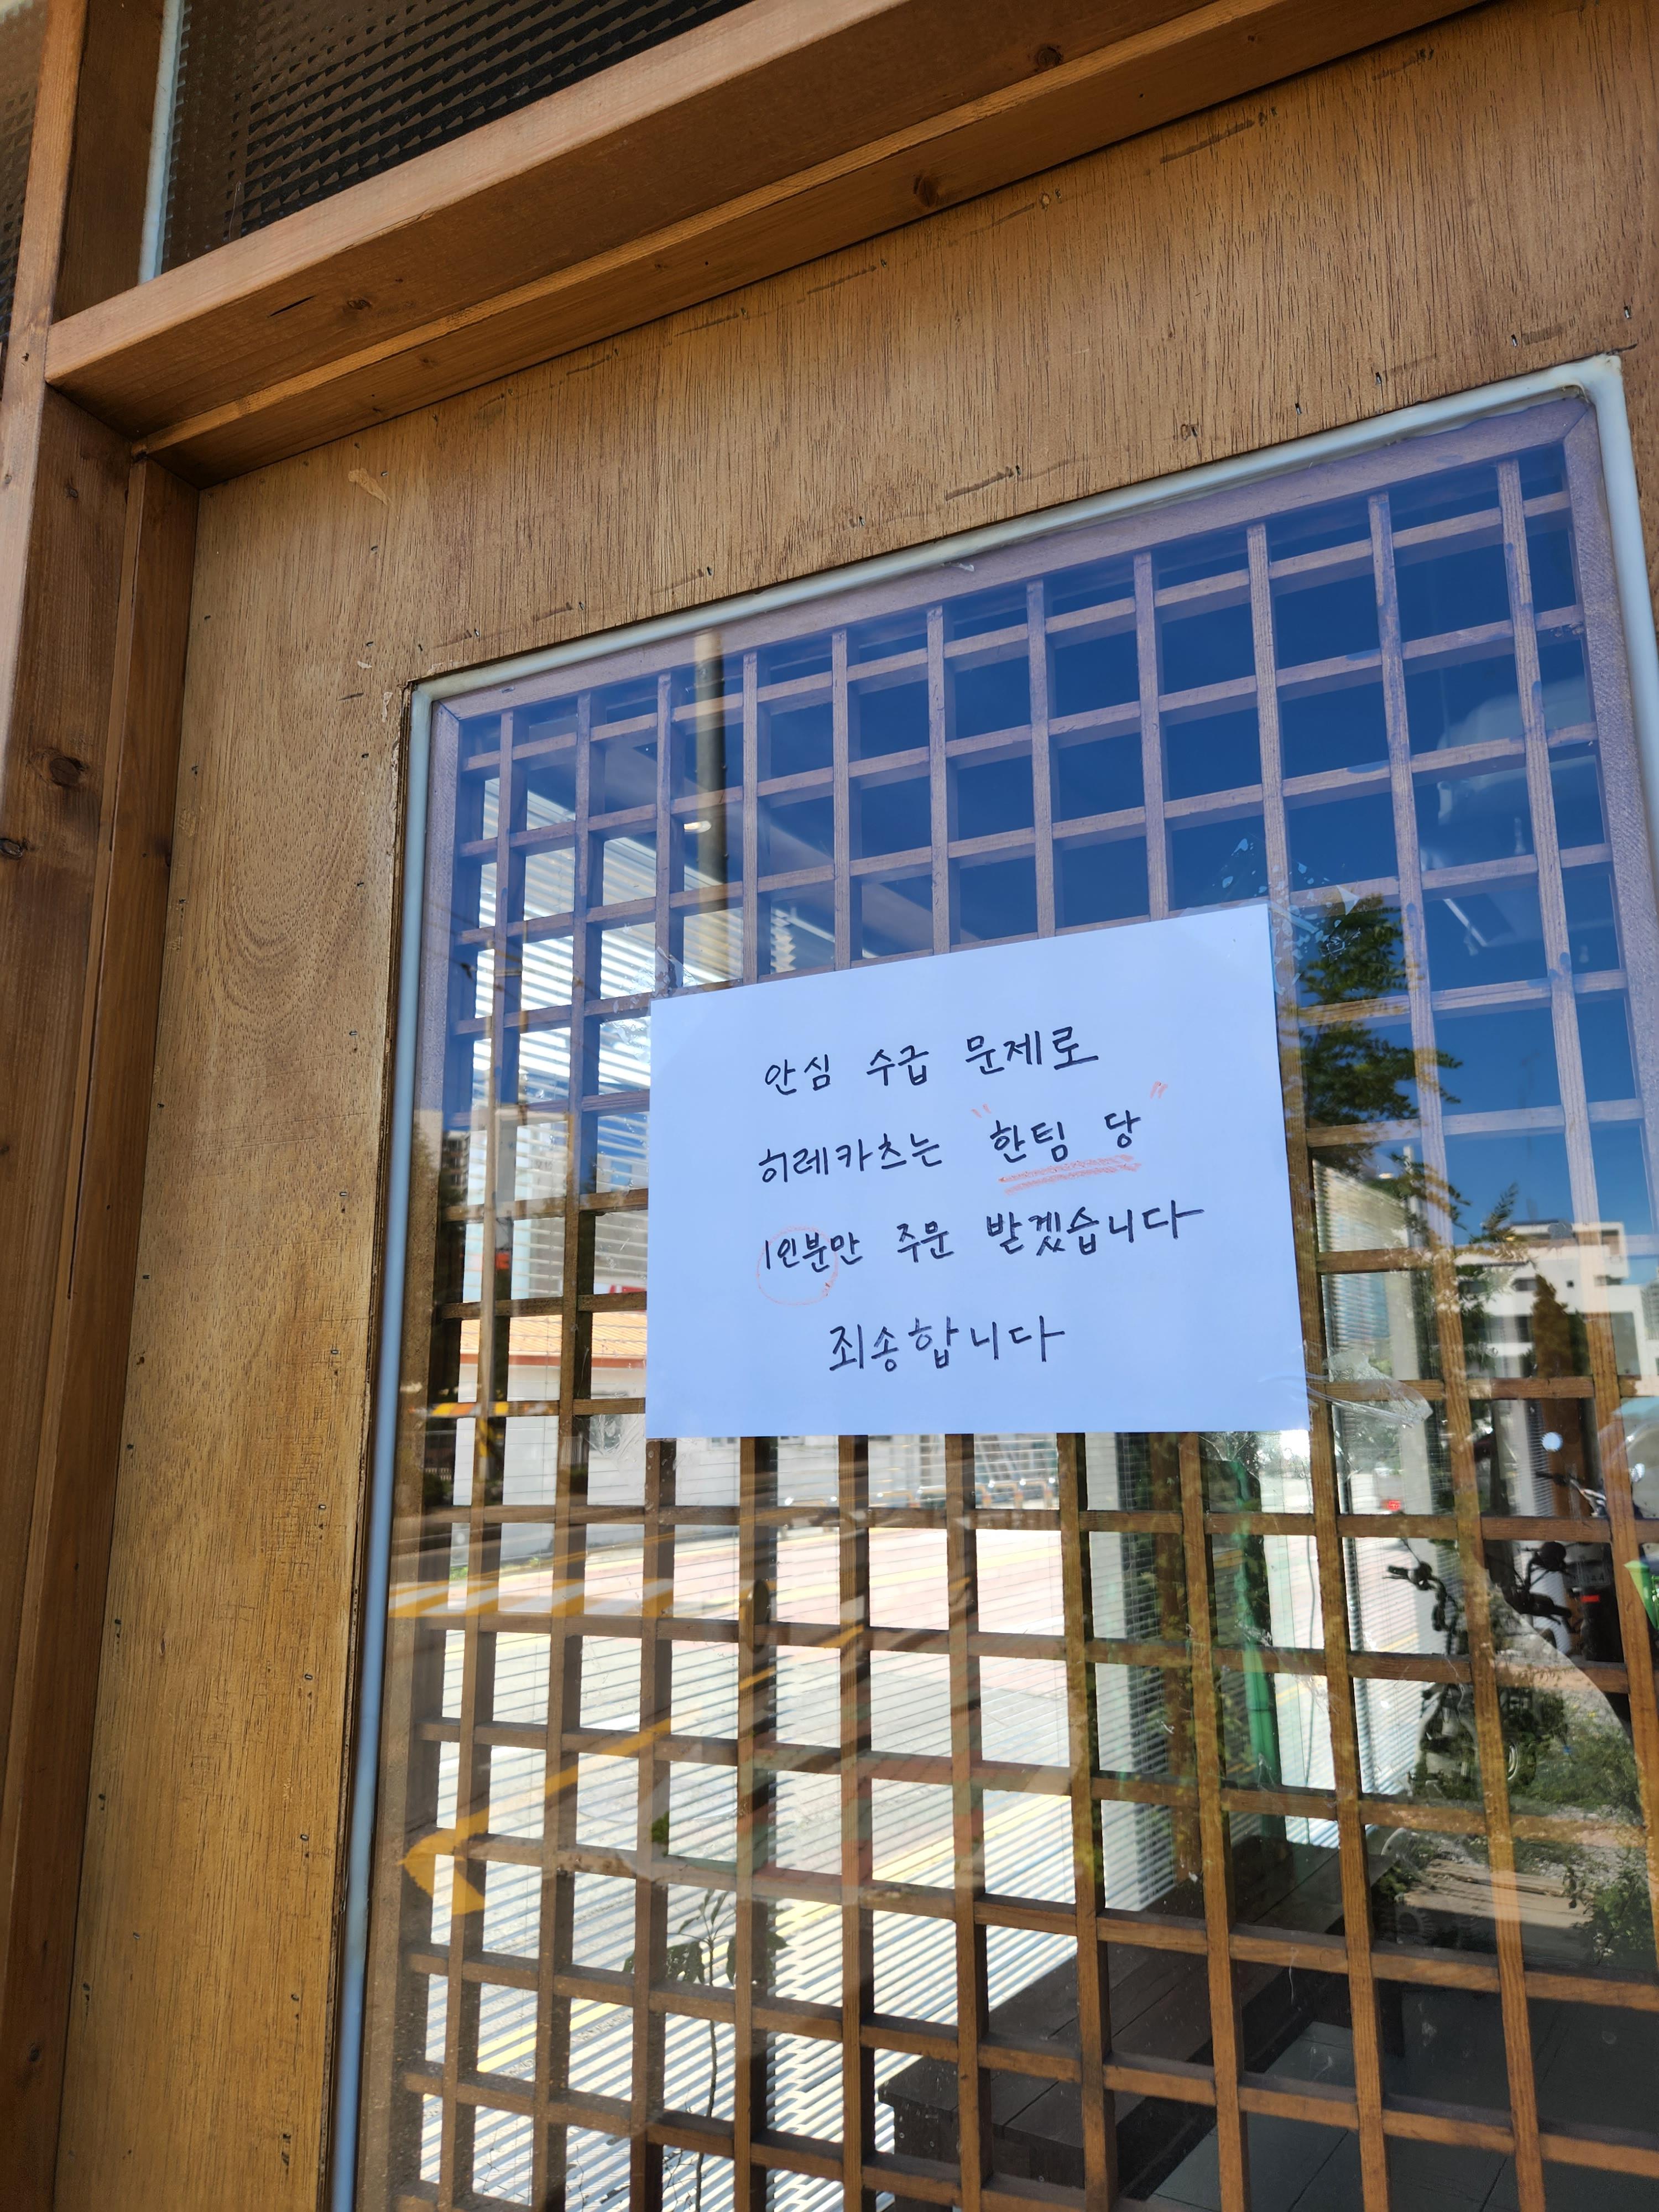 안심 수급 문제로
히레카츠는 "한팀 당"
1인분만 주문 받겠습니다
죄송합니다